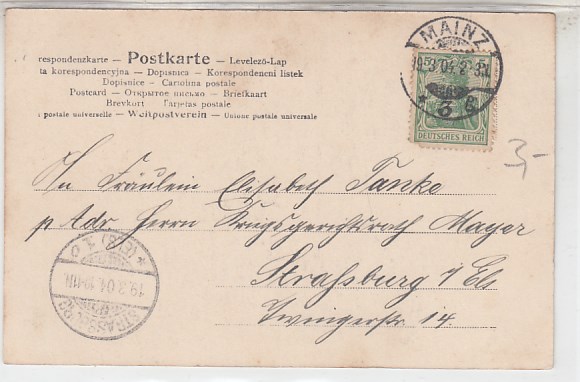 respondenzkarte – Postkarte – Levelező-Lap
ta korespondencyjna – Dopisnica – Korespondencni listek
Dopisnice – Cartolina postale
Postcard – Открытое письмо – Briefkaart
Brevkort – Tarjetas postale
postale universelle – Weltpostverein – Unione postale universale
MAINZ
19.3.04.
DEUTSCHES REICH
3,-
An Fräulein Elisabeth Tanke
p Adr. Herrn Kriegsgerichtsrath Mayer
Straßburg i/Els
Zwingerstr 14.
STRASSBURG
19.3.04.